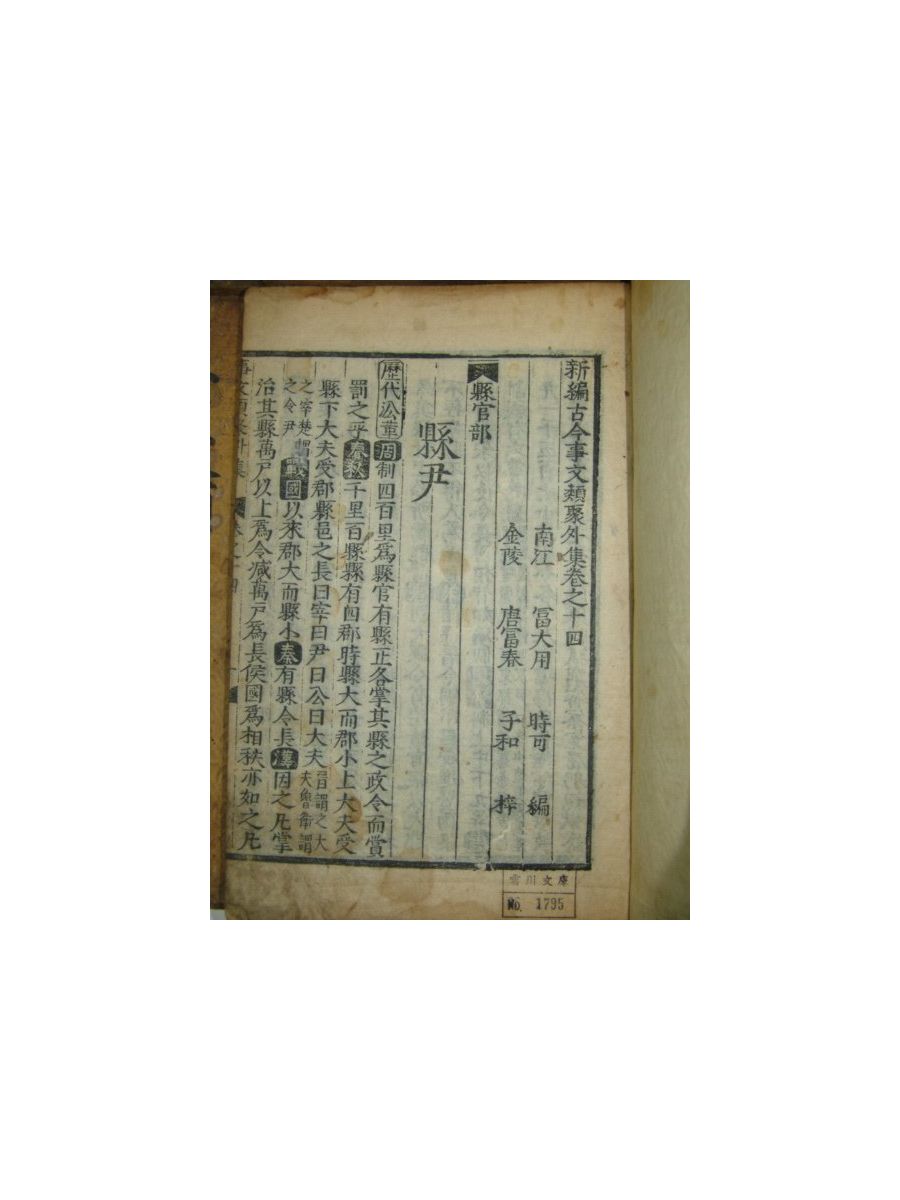 新編古今事文類聚外集卷之十四
南江 冨大用 時可 編
金陵 唐冨春 子和 梓
縣官部
縣尹
歷代㳂革周制四百里爲縣官有縣正各掌其縣之政令而賞
罰之乎春秋千里百縣縣有四郡時縣大而郡小上大夫受
縣下大夫受郡縣邑之長曰宰曰尹曰公曰大夫晋謂之大
夫魯衛謂
之宰楚謂
之令尹
戰國以來郡大而縣小秦有縣令長漢因之凡掌
治其縣萬戶以上爲令减萬戶爲長侯國爲相秩亦如之凡
事文類聚外集 卷之十四
雲川文庫
No. 1795